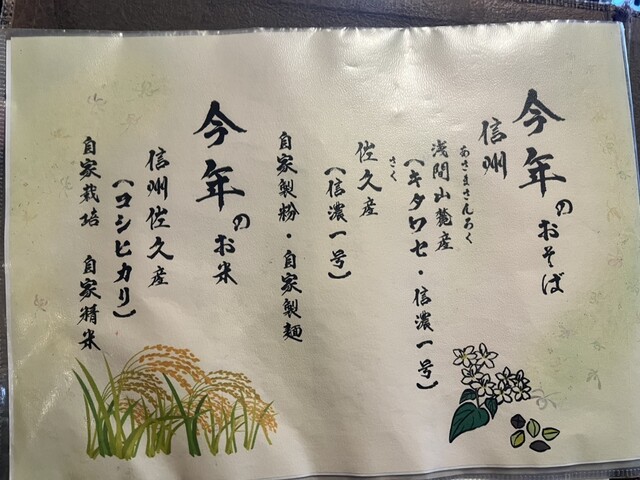 今年のおそば
信州
浅間山麓産
あさまさんろく
(キタワセ・信濃一号)
佐久産
さく
(信濃一号)
自家製粉・自家製麺
今年のお米
信州佐久産
(コシヒカリ)
自家栽培 自家精米